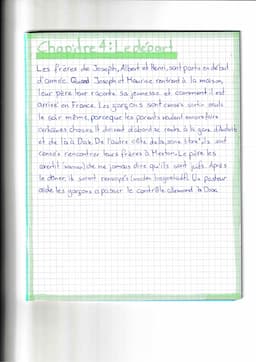 Chapitre 4: Le départ
Les frères de Joseph, Albert et Henri, sont partis en début
d'année. Quand Joseph et Maurice rentrent à la maison,
leur père leur raconte sa jeunesse et comment il est
arrivé en France. Les garçons sont censés sortir seuls
le soir même, parce que les parents veulent encore faire
certaines choses. Ils doivent d'abord se rendre à la gare d'Austerlitz
et de là à Dax. De l'autre côté de la "zone libre", ils sont
censés rencontrer leurs frères à Menton. Le père les
avertit de ne jamais dire qu'ils sont juifs. Après
le dîner, ils seront renvoyés. Un pasteur
aide les garçons à passer le contrôle allemand à Dax.